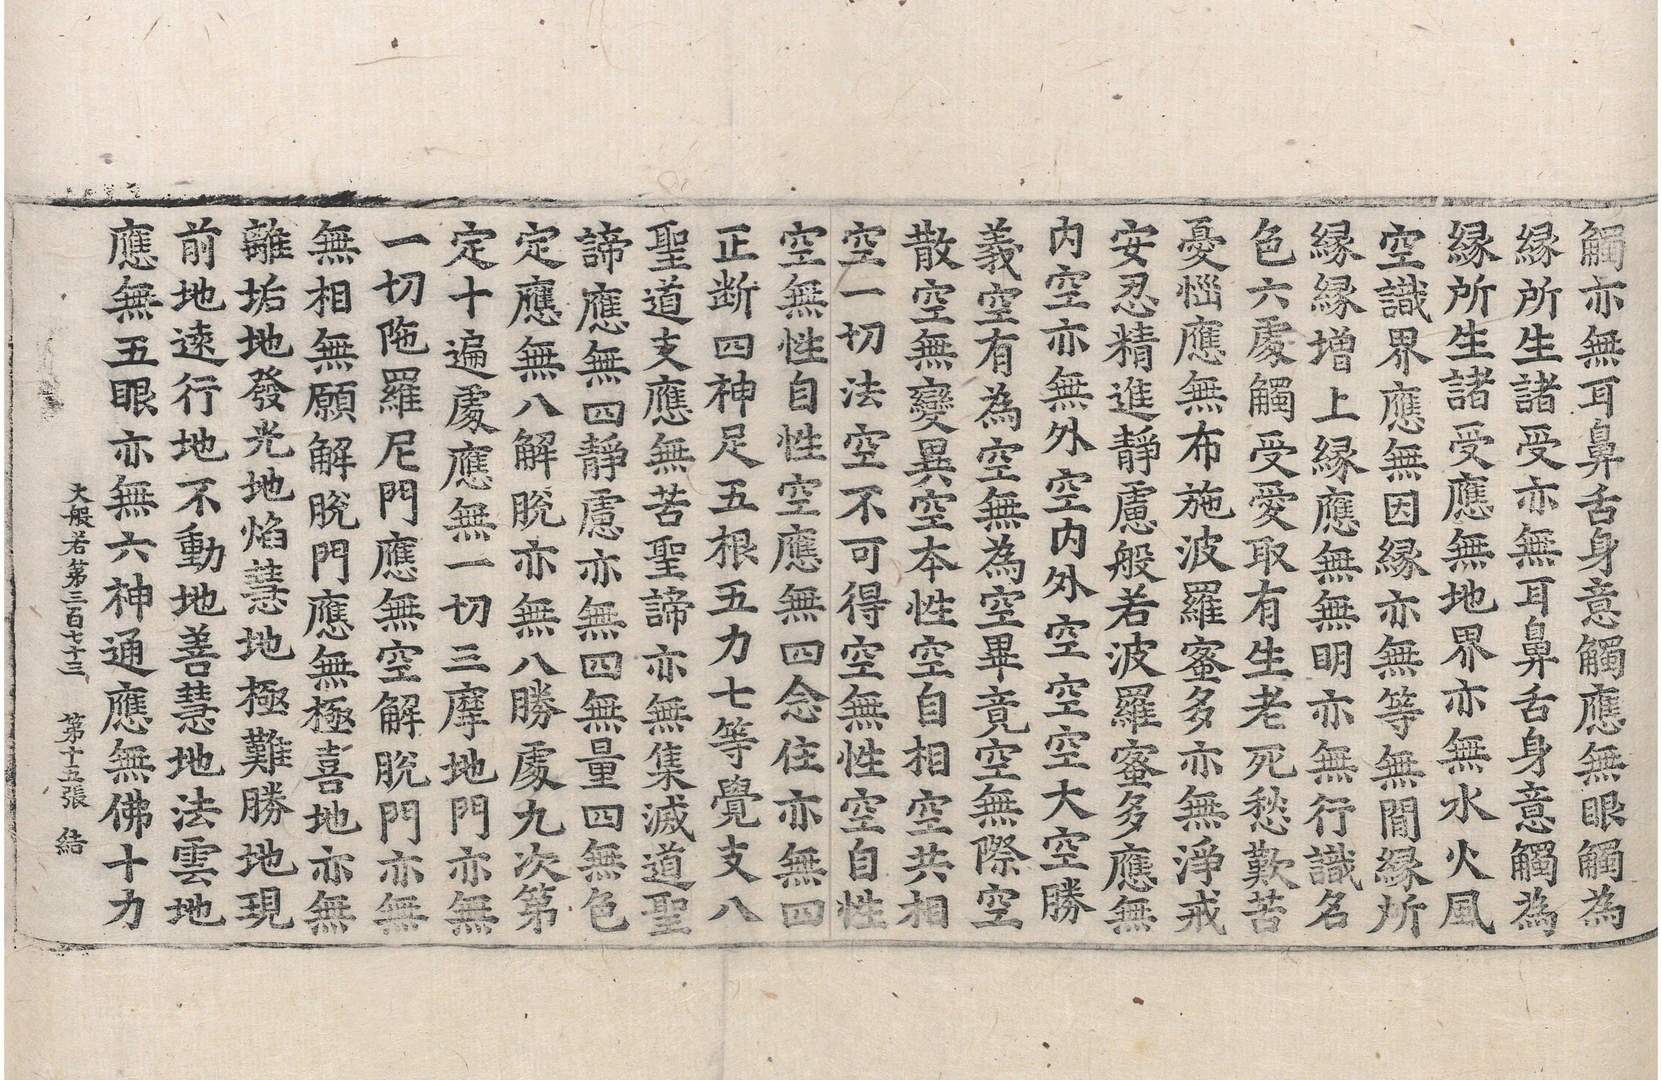 觸亦無耳鼻舌身意觸應無眼觸為
縁所生諸受亦無耳鼻舌身意觸為
縁所生諸受應無地界亦無水火風
空識界應無因縁亦無等無閒縁所
縁縁増上縁應無無明亦無行識名
色六處觸受愛取有生老死愁歎苦
憂惱應無布施波羅蜜多亦無淨戒
安忍精進靜慮般若波羅蜜多應無
内空亦無外空内外空空空大空勝
義空有為空無為空畢竟空無際空
散空無變異空本性空自相空共相
空一切法空不可得空無性空自性
空無性自性空應無四念住亦無四
正断四神足五根五力七等覺支八
聖道支應無苦聖諦亦無集滅道聖
諦應無四靜慮亦無四無量四無色
定應無八解脫亦無八勝處九次第
定十遍處應無一切三摩地門亦無
一切陁羅尼門應無空解脫門亦無
無相無願解脫門應無極喜地亦無
離垢地發光地焰慧地極難勝地現
前地遠行地不動地善慧地法雲地
應無五眼亦無六神通應無佛十力
大般若第三百七十三 第十五張 結